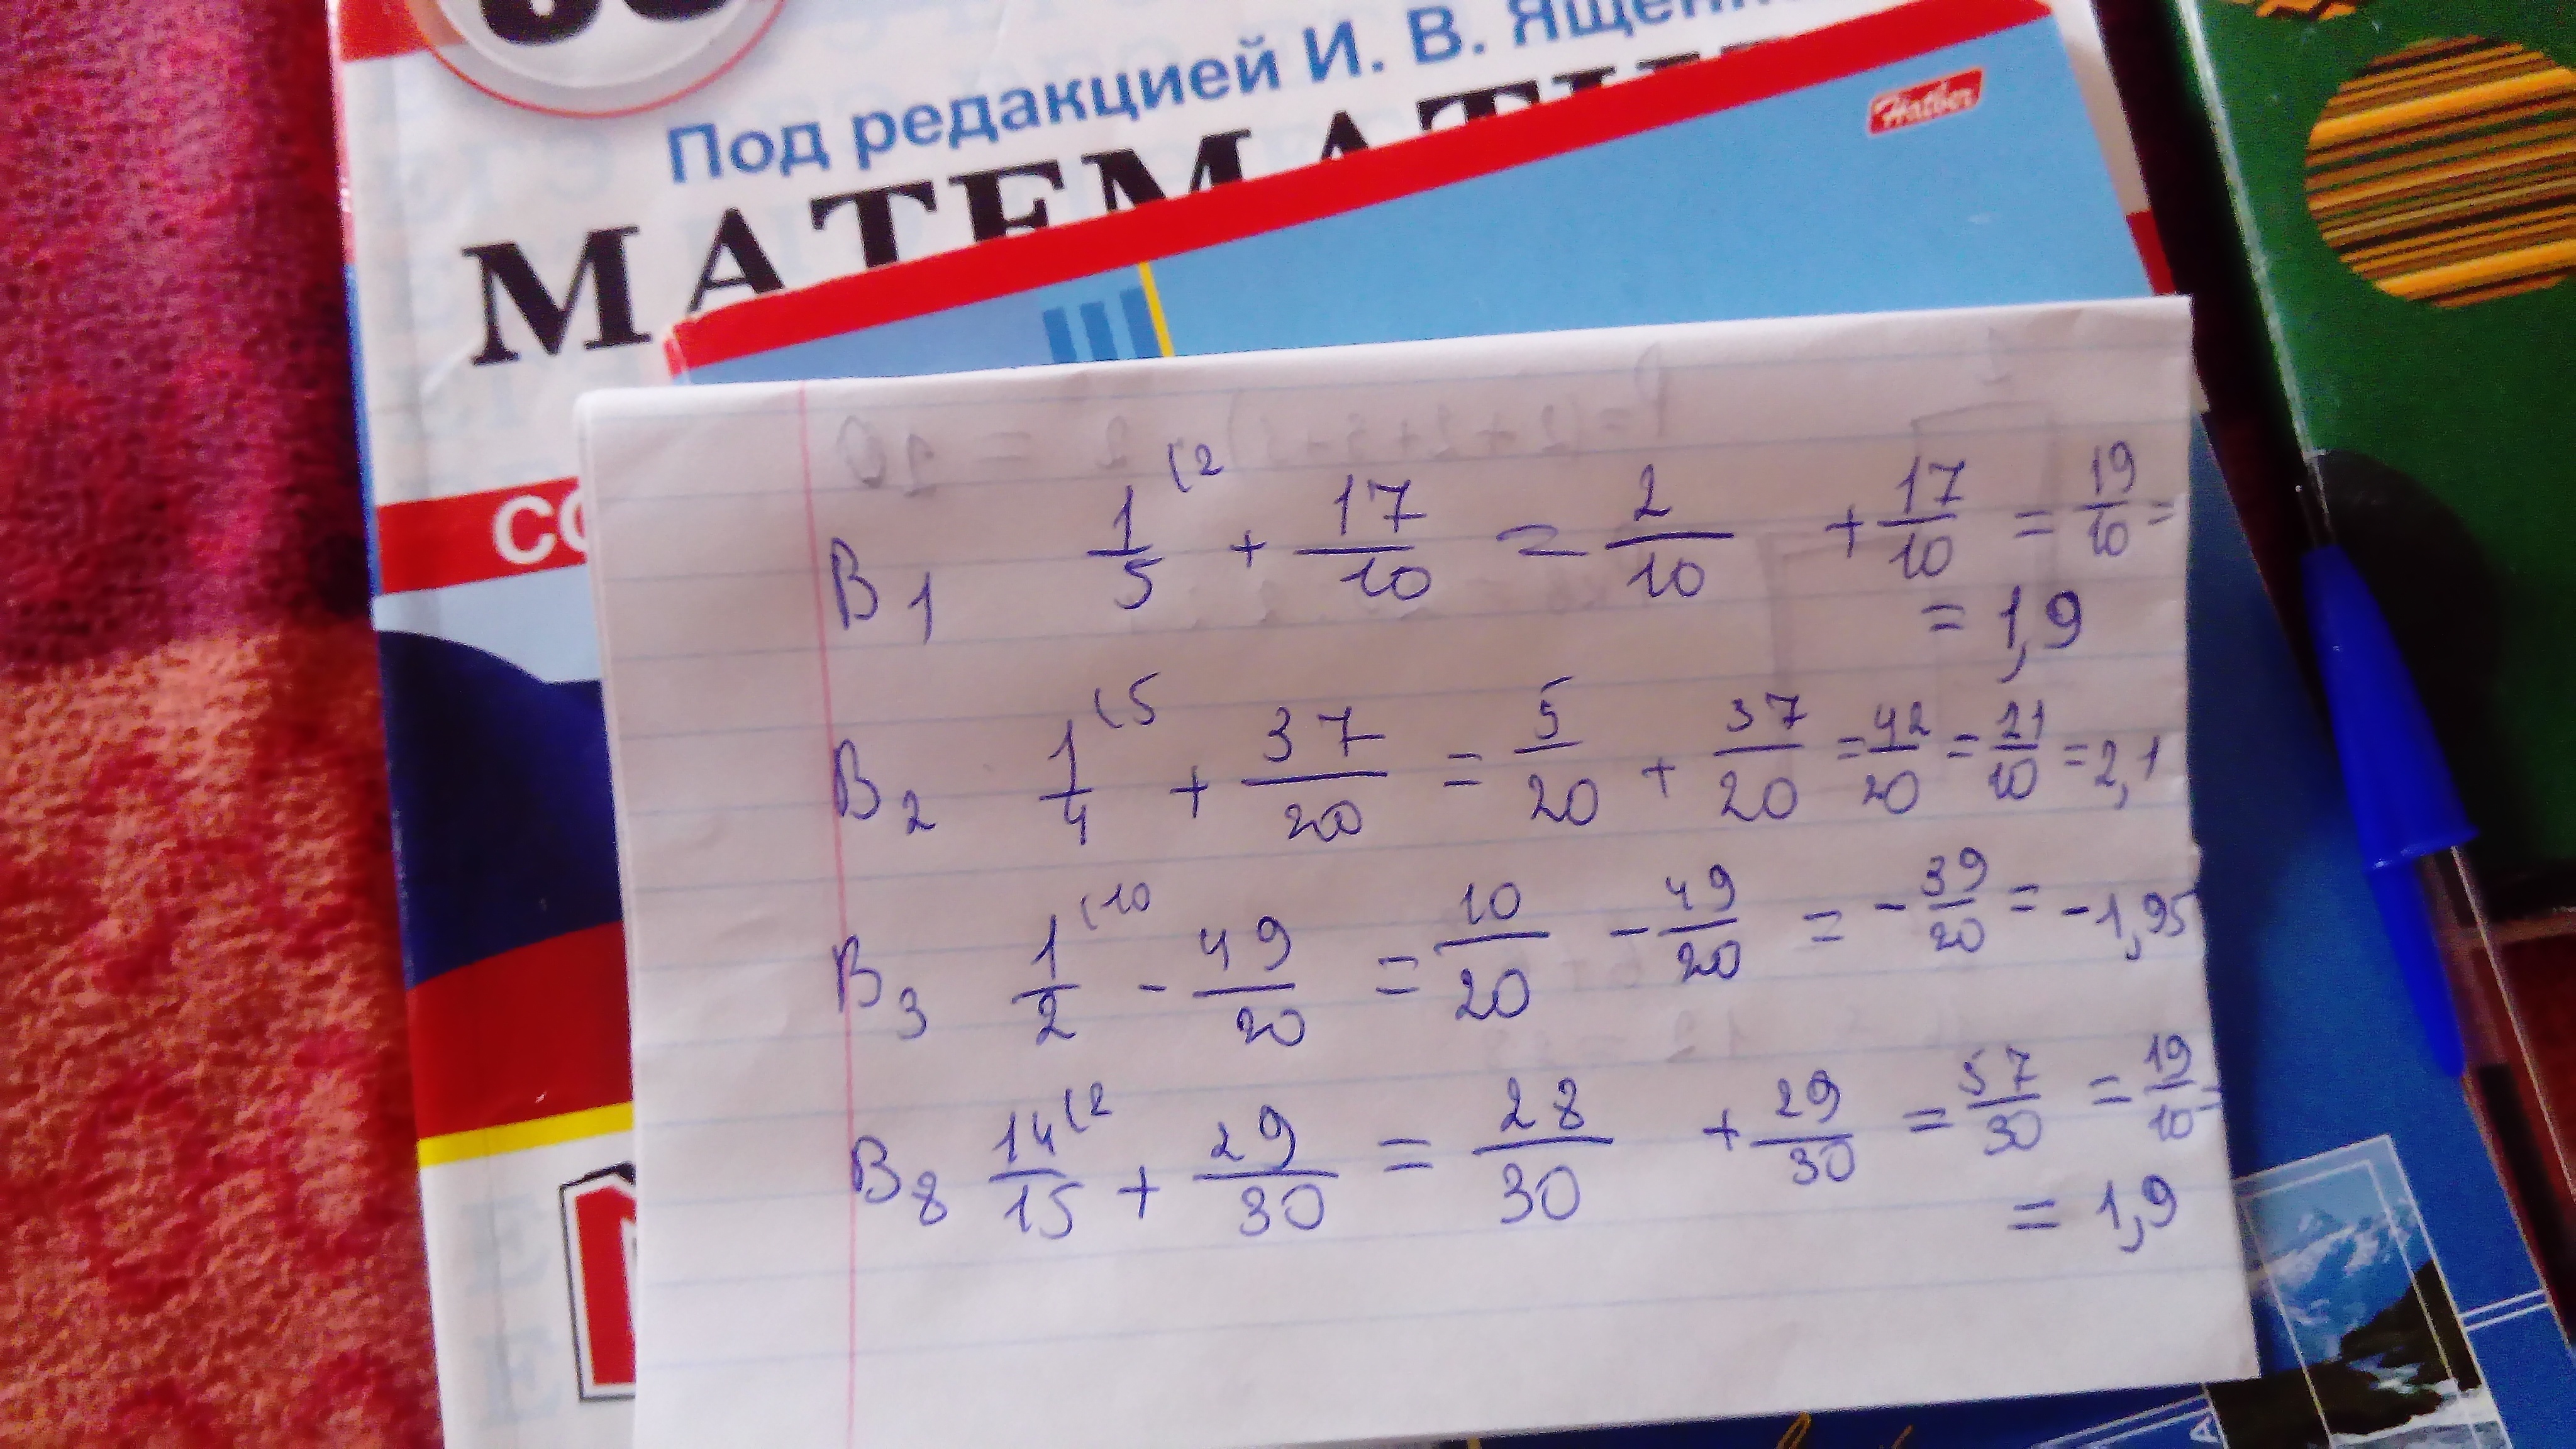 Под редакцией И. В. Ященко
МАТЕМАТИ
Hatber
СО
B1 1/5 (2 + 17/10 = 2/10 + 17/10 = 19/10 =
= 1,9
B2 1/4 (5 + 37/20 = 5/20 + 37/20 = 42/20 = 21/10 = 2,1
B3 1/2 (10 - 49/20 = 10/20 - 49/20 = - 39/20 = - 1,95
B8 14/15 (2 + 29/30 = 28/30 + 29/30 = 57/30 = 19/10 =
= 1,9